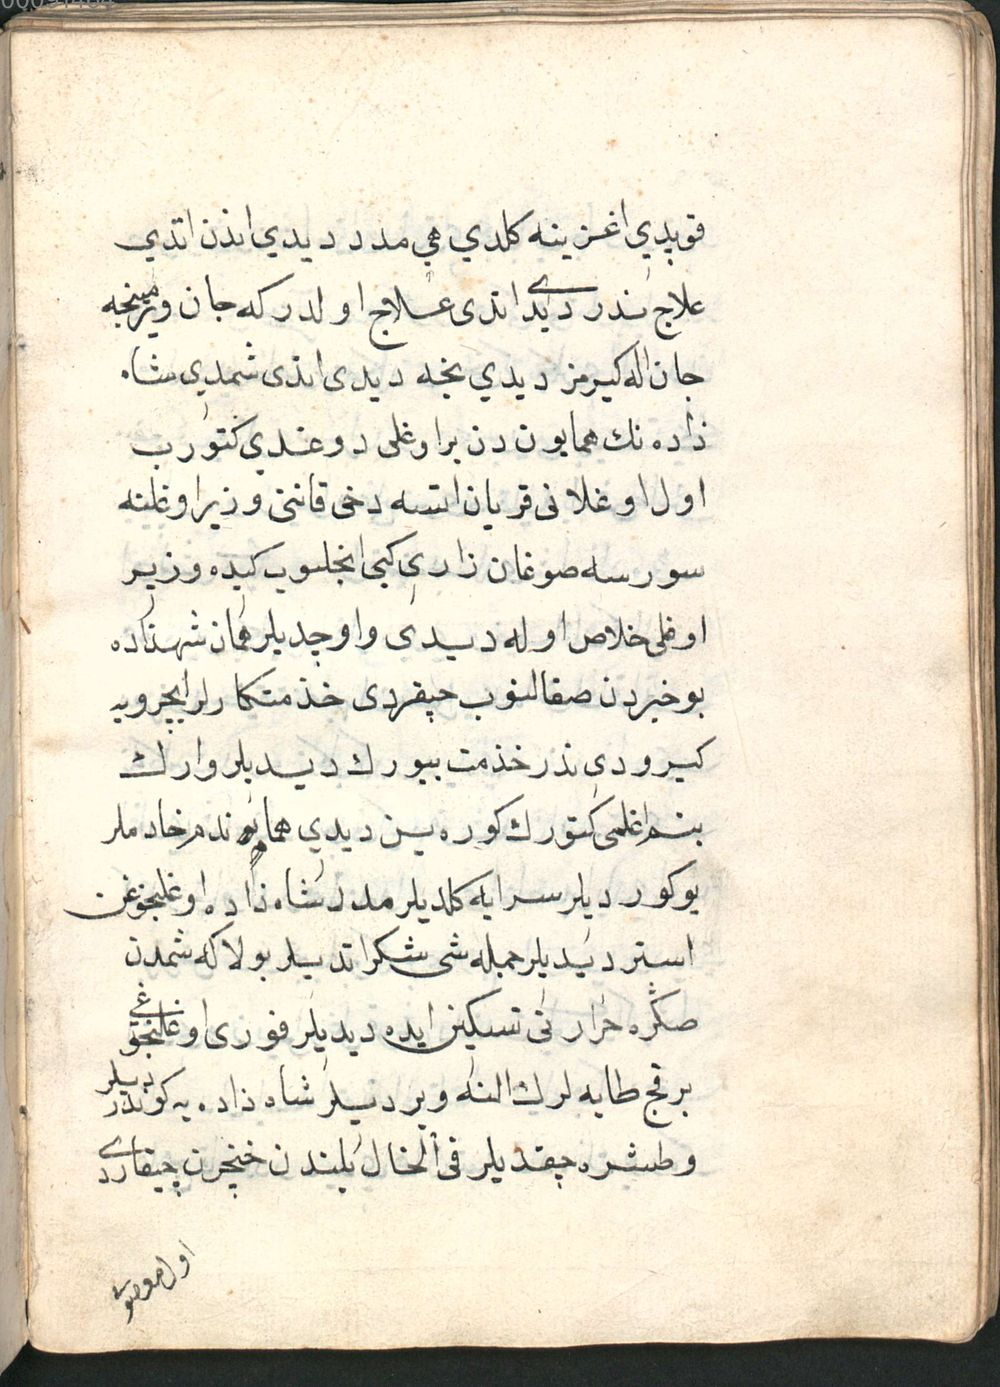 قوپدي اغزینه كلدي هي مدد دیدي اندن اتدي
علاج ندر دیدی اتدی علاج اولدر كه جان ویرمینجه
جان اله كیرمز دیدي نجه دیدی اندی شمدي شاه
زاده نك همایون دن بر اوغلی دوغدي كتورب
اول اوغلانی قربان اتسه دخی قاننی وزیر اوغلنه
سورسه صوغان زاری كبی انجلوب كیده وزیر
اوغلی خلاص اوله دیدی واوچدیلر همان شهزاده
بو خبردن صقالنوب چیقردی خذمتكارلر ایچرویه
كیرودی ندر خذمت بیورك دیدیلر وارك
بنم اغلمی كتورك كوره یین دیدي همایوندم خادملر
یوكوردیلر سرایه كلدیلر مدد شاه زاده اوغلنجوغن
استر دیدیلر جمله شی شكر اتدیلر بولا كه شمدن
صكره حرارتی تسكین ایده دیدیلر فوری اوغلنجوغی
بر قچ طایه لرك النه ویردیلر شاه زاده یه كوندردیلر
وطشره چقدیلر فی الحال بلندن خنچرن چیقاردی
اول معصو